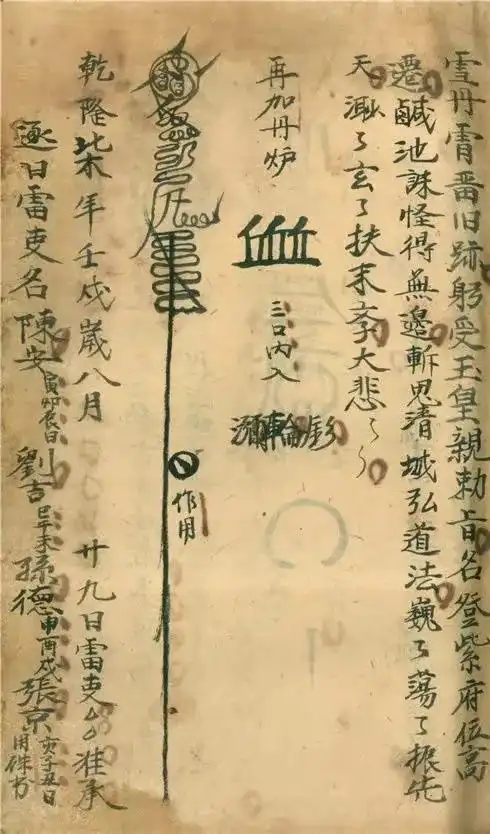 丹霄旧跡躬受玉皇親勅旨名登紫府位高
遷鹹池誅怪得無邊斬鬼清城弘道法巍々蕩々振
天々玄々扶末大悲々々
再加丹炉
三口内入
輪
作用
乾隆柒年壬戌歲八月 廿九日雷吏厶厶准承
逐日雷吏名陳安寅卯辰日劉吉巳午未孫德申酉戌張京亥子丑日用硃